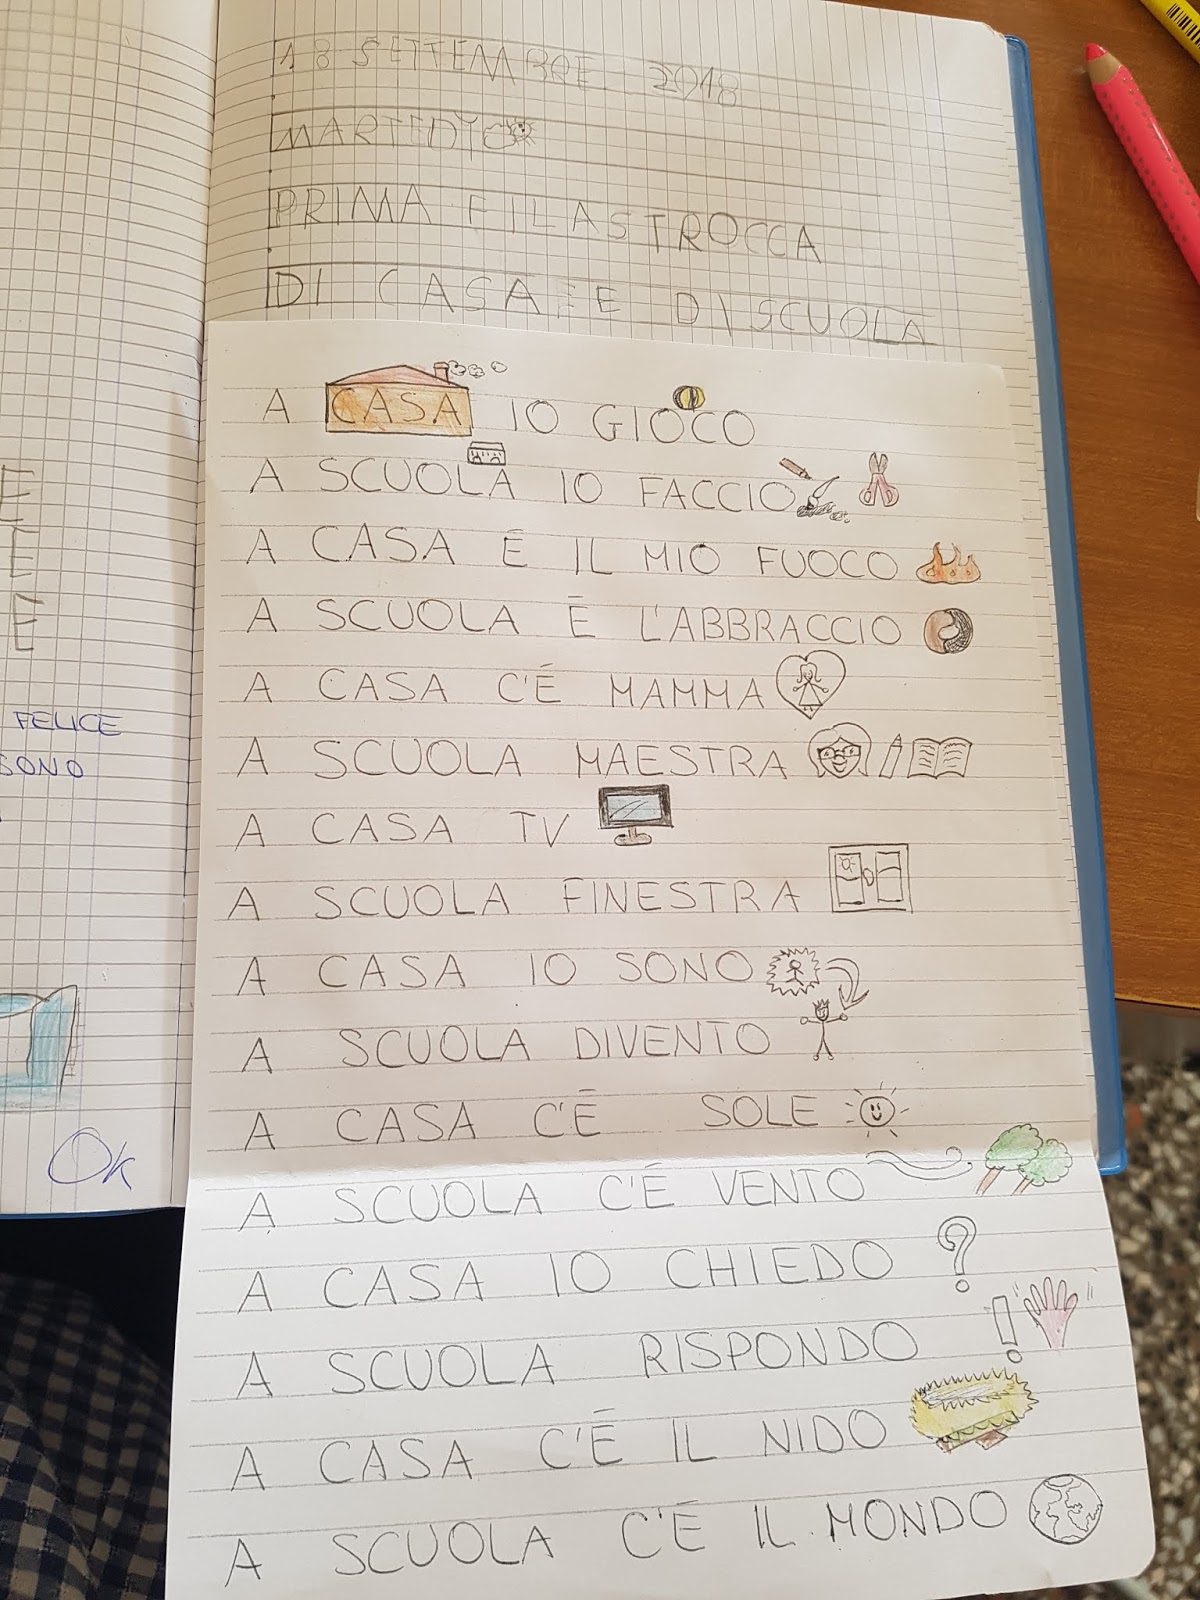 18 SETTEMBRE 2018
MARTEDÌ
PRIMA FILASTROCCA
DI CASA E DI SCUOLA
A CASA IO GIOCO
A SCUOLA IO FACCIO
A CASA E IL MIO FUOCO
A SCUOLA È L'ABBRACCIO
A CASA C'É MAMMA
A SCUOLA MAESTRA
A CASA TV
A SCUOLA FINESTRA
A CASA IO SONO
A SCUOLA DIVENTO
A CASA C'É SOLE
A SCUOLA C'É VENTO
A CASA IO CHIEDO ?
A SCUOLA RISPONDO !
A CASA C'É IL NIDO
A SCUOLA C'È IL MONDO
FELICE
SONO
Ok